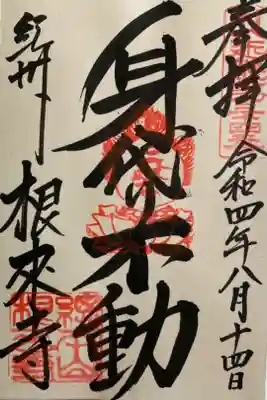 奉拝 令和四年八月十四日
身代不動
紀州 根来寺